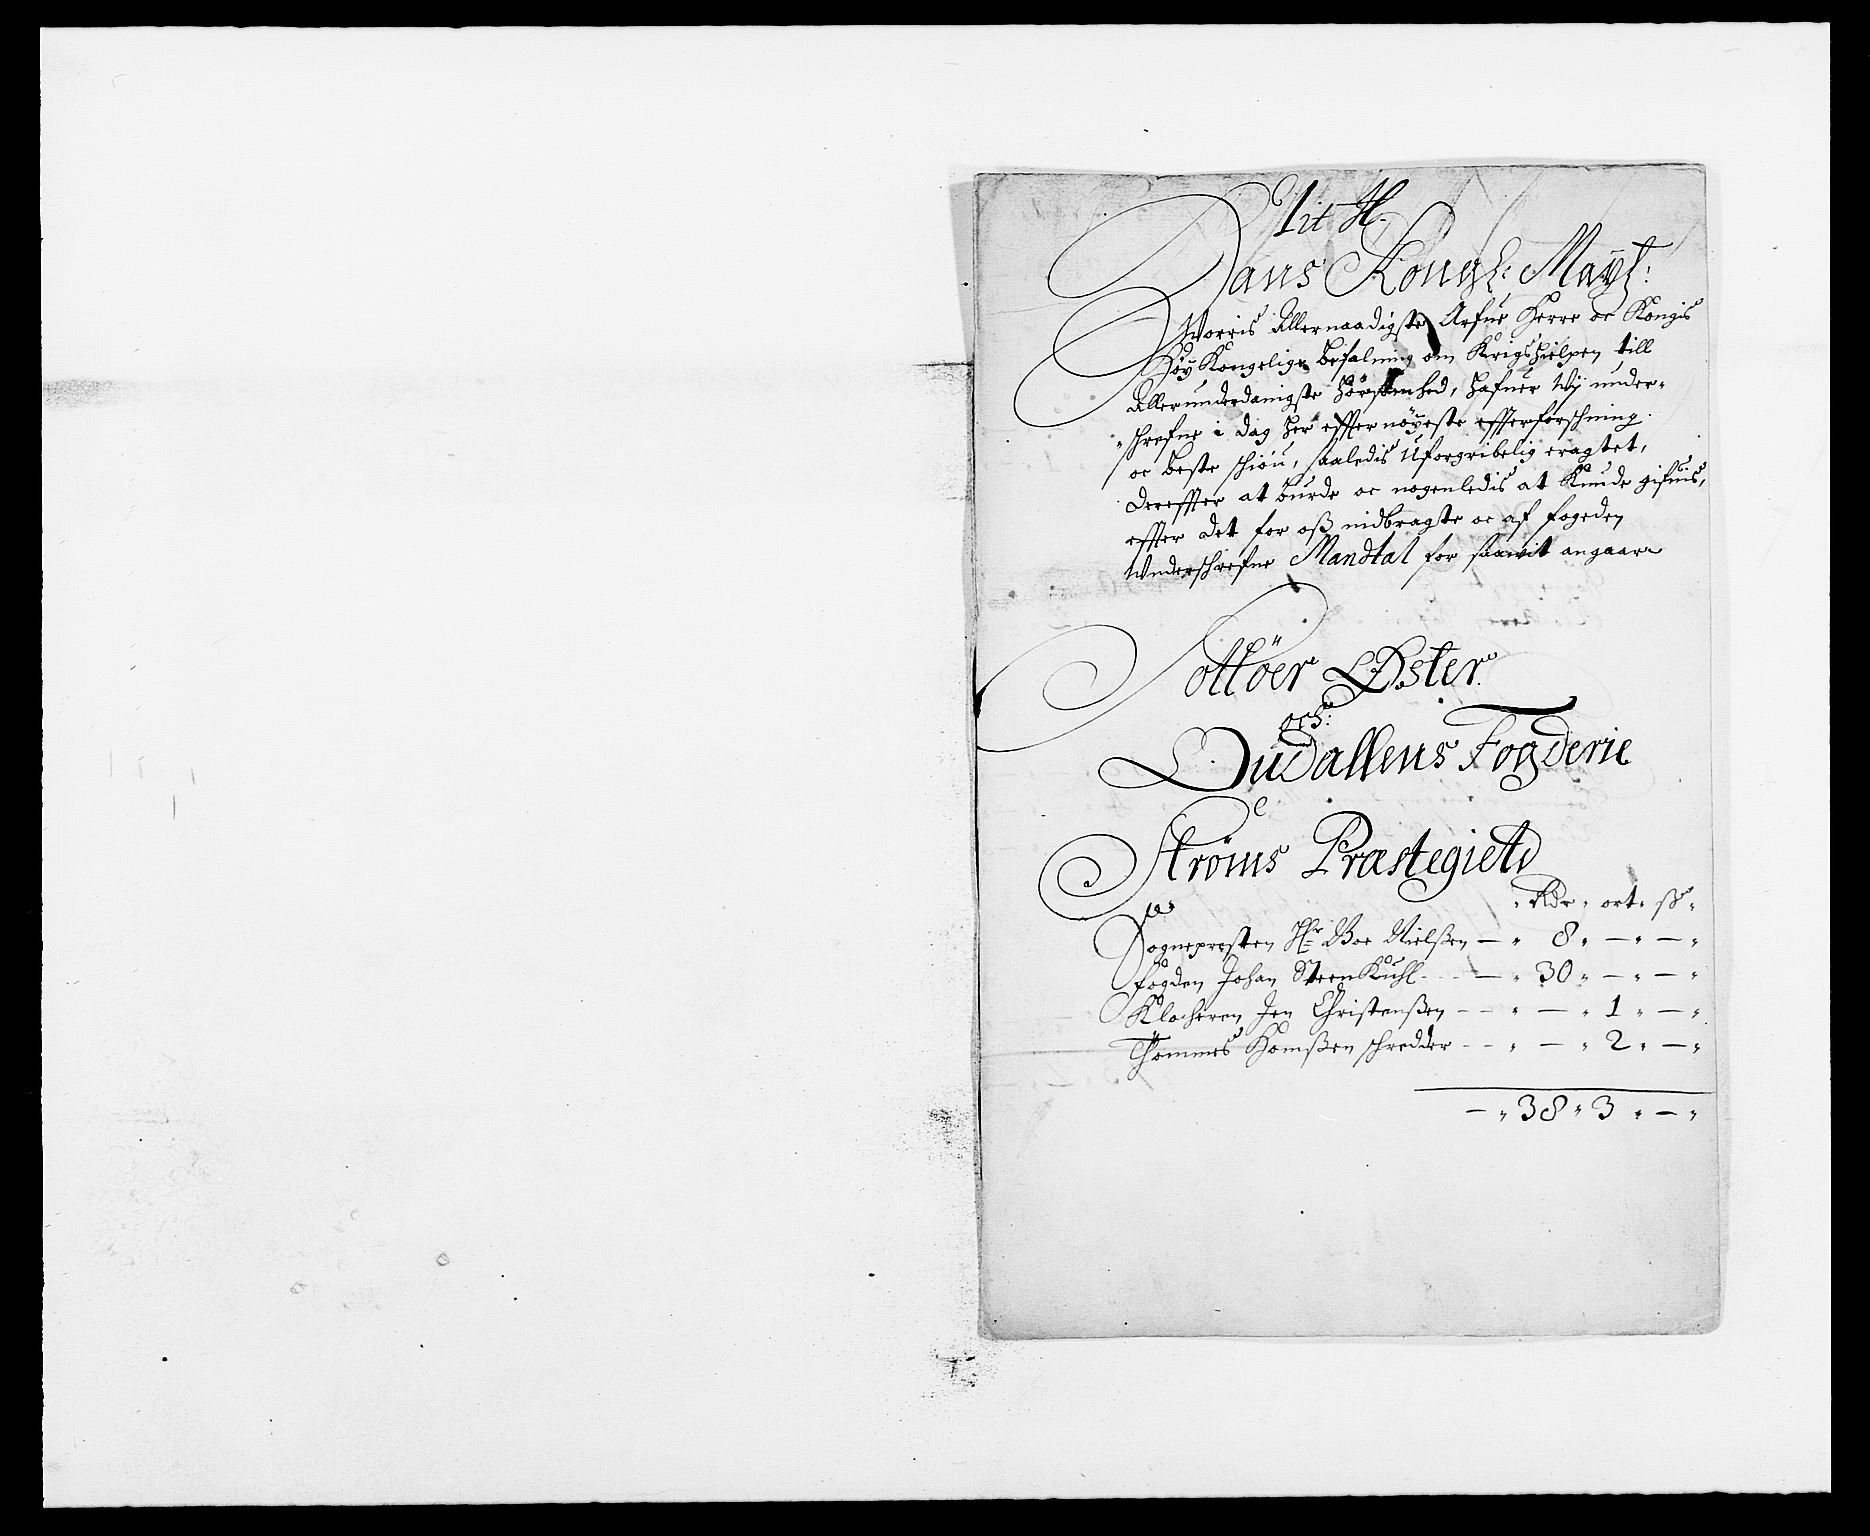 Lit H.
Hans Kongl: Mayt:
Worris Allernaadigste Arfue Herre oc Kongis
Høy Kongelige Befalning om Krigshielpen till
Allerunderdanigste hørsomhed, hafuer Wij under-
schrefne i dag her effter nøyeste efferforschning
oc beste schiøn, saaledis Uforgribelig eragtet,
Dereffter at burde oc nogenledis at Kunde gifuis,
effter det for oss indbragte oc af fogeden
Underschrefne Mandtal for saawit angaar
Sottöer Øster
och:
Oudallens Fogderie
Strøms Præstegield
Rdr ort ss
Sognepresten Hr Boe Nielssen — 8 — —
Fogden Johan SteenKuhl — 30 — —
Klocheren Jen Christenssen — — 1 —
Thommes Homssen schredder — — 2 —
— 38 3 —